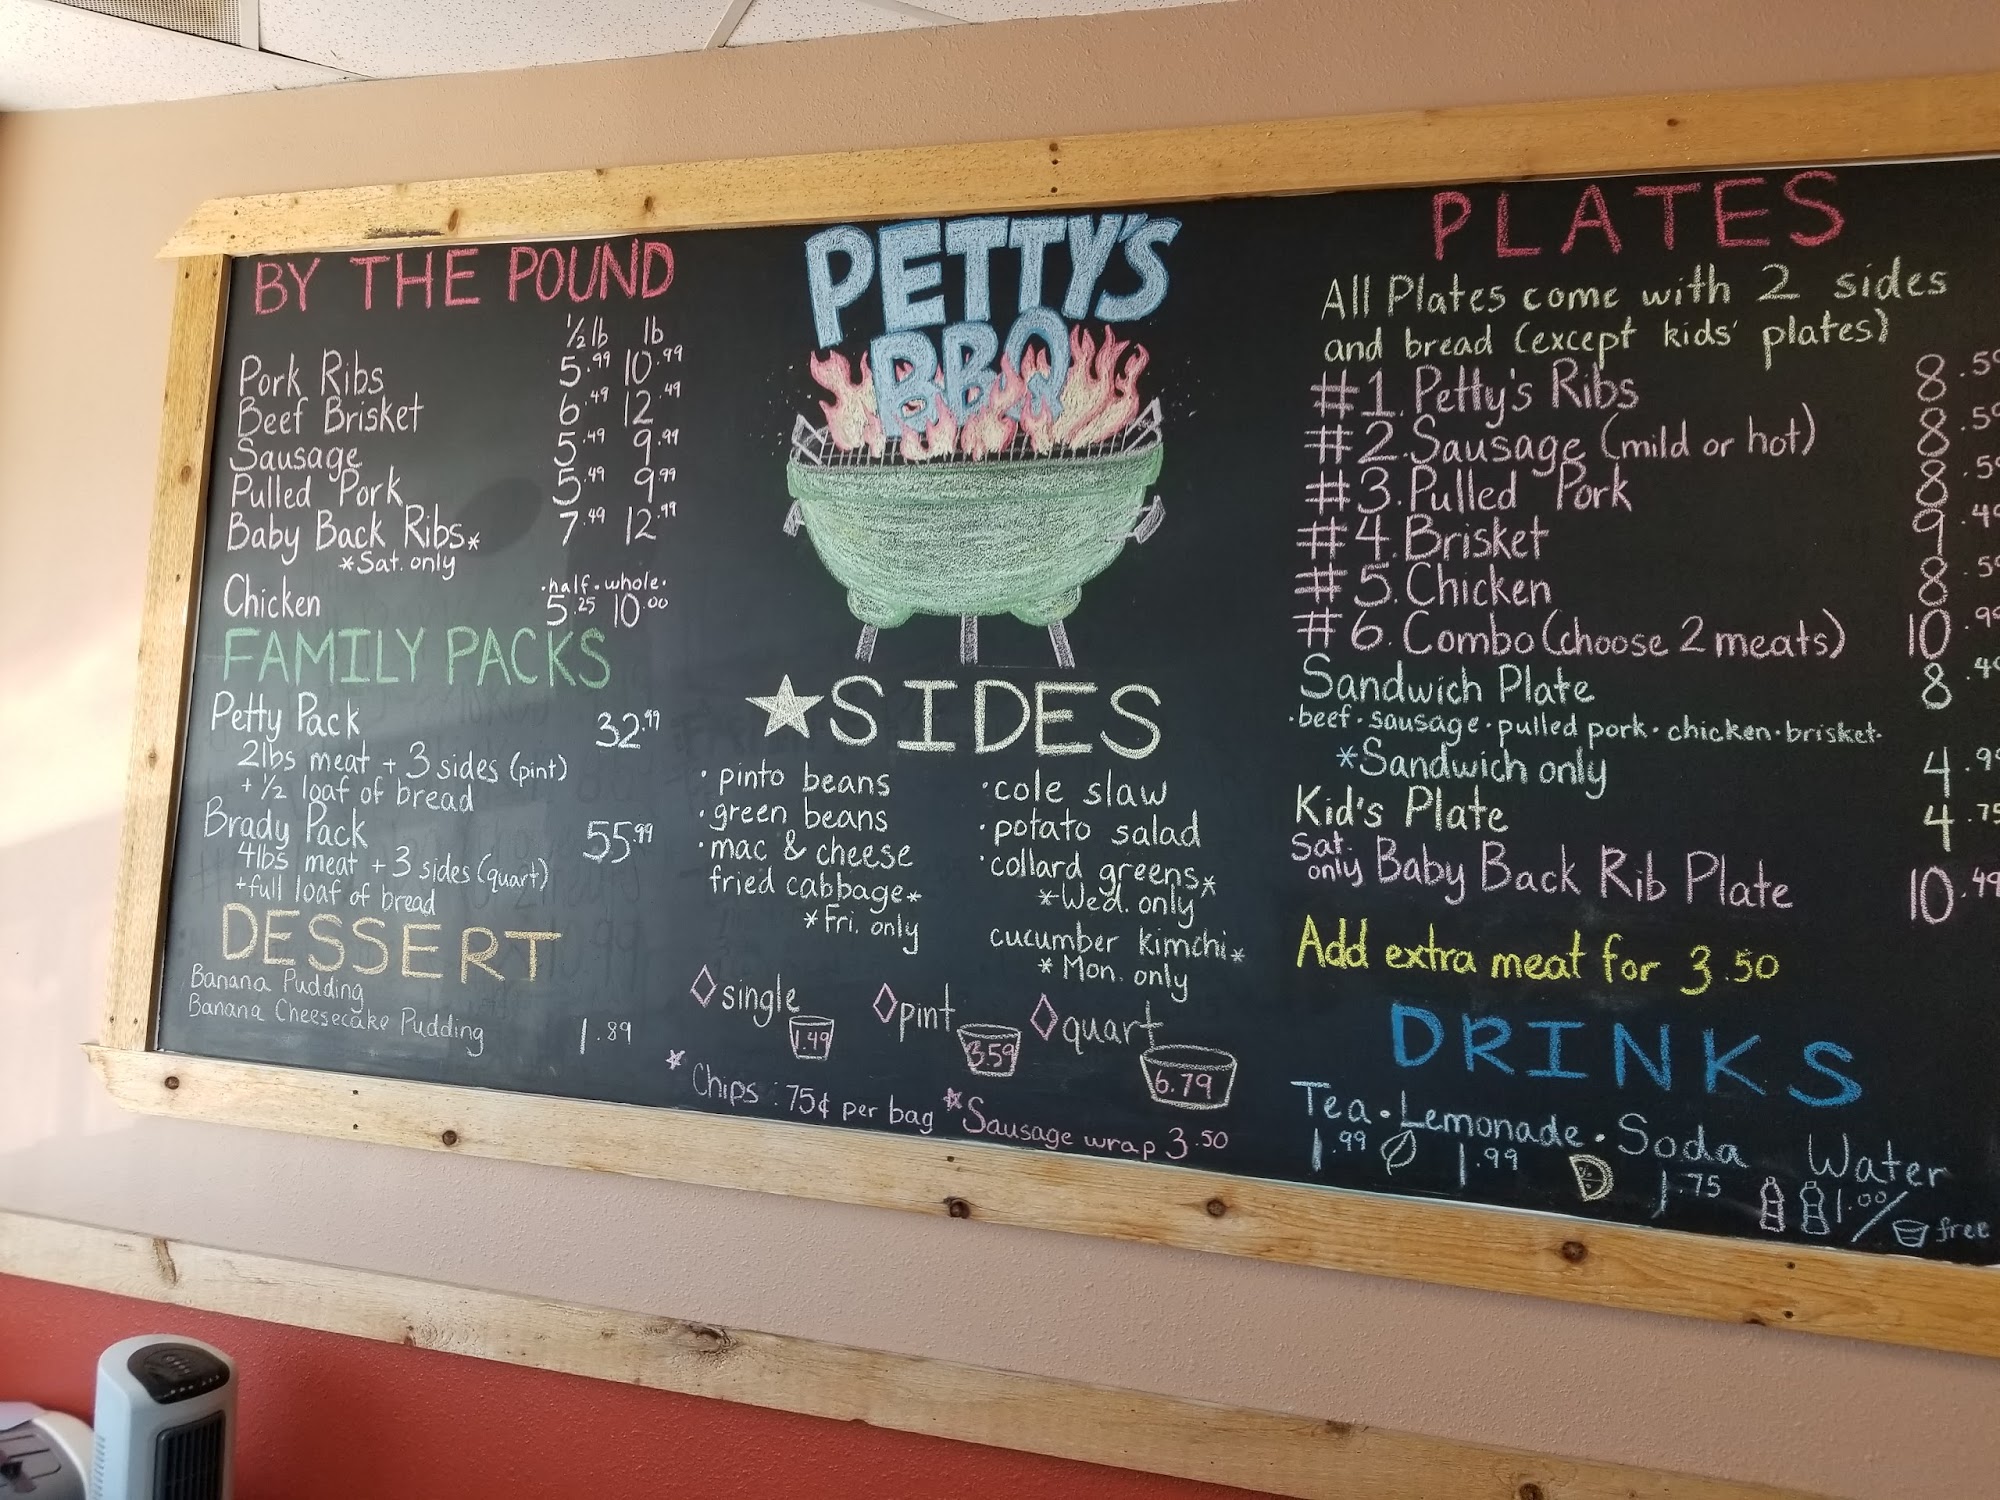 BY THE POUND
½ lb lb
Pork Ribs 5.99 10.99
Beef Brisket 6.49 12.49
Sausage 5.49 9.99
Pulled Pork 5.49 9.99
Baby Back Ribs* 7.49 12.99
*Sat. only
·half·whole·
Chicken 5.25 10.00
FAMILY PACKS
Petty Pack 32.99
2lbs meat + 3 sides (pint)
+ ½ loaf of bread
Brady Pack 55.99
4lbs meat + 3 sides (quart)
+full loaf of bread
DESSERT
Banana Pudding
Banana Cheesecake Pudding 1.89
PETTY'S
BBQ
SIDES
· pinto beans
· green beans
· mac & cheese
fried cabbage*
*Fri. only
· cole slaw
· potato salad
· collard greens*
*Wed. only
cucumber kimchi*
* Mon. only
single 1.49
pint 3.59
quart 6.79
* Chips : 75¢ per bag * Sausage wrap 3.50
PLATES
All Plates come with 2 sides
and bread (except kids' plates)
#1. Petty's Ribs 8.59
#2. Sausage (mild or hot) 8.59
#3. Pulled Pork 8.59
#4. Brisket 9.49
#5. Chicken 8.59
#6. Combo (choose 2 meats) 10.99
Sandwich Plate 8.49
·beef·sausage·pulled pork·chicken·brisket·
*Sandwich only 4.99
Kid's Plate 4.75
Sat. only Baby Back Rib Plate 10.49
Add extra meat for 3.50
DRINKS
Tea · Lemonade · Soda Water
1.99 1.99 1.75 1.00/ free